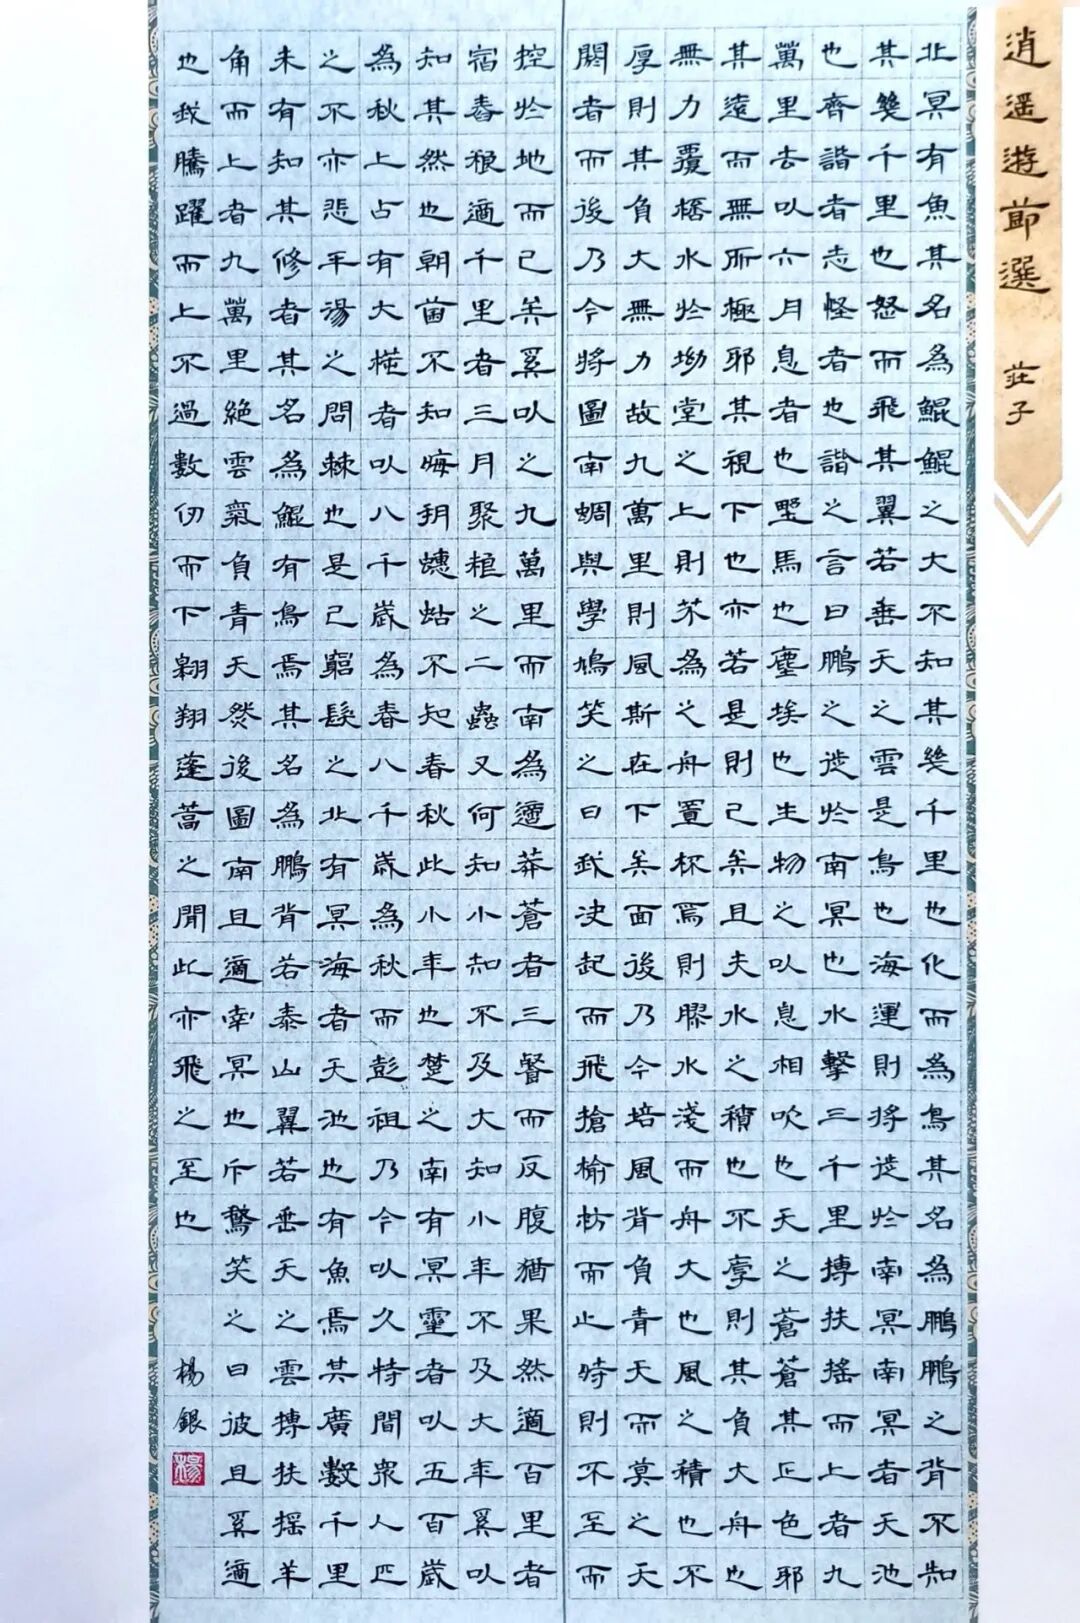 逍遥遊節選 莊子
北冥有魚其名為鯤鯤之大不知其幾千里也化而為鳥其名為鵬鵬之背不知
其幾千里也怒而飛其翼若垂天之雲是鳥也海運則將徙於南冥南冥者天池
也齊諧者志怪者也諧之言曰鵬之徙於南冥也水擊三千里摶扶搖而上者九
萬里去以六月息者也野馬也塵埃也生物之以息相吹也天之蒼蒼其正色耶
其遠而無所極耶其視下也亦若是則已矣且夫水之積也不厚則其負大舟也
無力覆杯水於坳堂之上則芥為之舟置杯焉則膠水淺而舟大也風之積也不
厚則其負大無力故九萬里則風斯在下矣面後乃今培風背負青天而莫之夭
閼者而後乃今將圖南蜩與學鳩笑之曰我決起而飛搶榆枋而止時則不至而
控於地而已矣奚以之九萬里而南為適莽蒼者三餐而反腹猶果然適百里者
宿舂糧適千里者三月聚糧之二蟲又何知小知不及大知小年不及大年奚以
知其然也朝菌不知晦朔蟪蛄不知春秋此小年也楚之南有冥靈者以五百歲
為秋上占有大椿者以八千歲為春八千歲為秋而彭祖乃今以久特間眾人匹
之不亦悲乎湯之問棘也是已窮髮之北有冥海者天池也有魚焉其廣數千里
未有知其修者其名為鯤有鳥焉其名為鵬背若泰山翼若垂天之雲摶扶搖羊
角而上者九萬里絕雲氣負青天然後圖南且適南冥也斥鴳笑之曰彼且奚適
也我騰躍而上不過數仞而下翱翔蓬蒿之間此亦飛之至也
楊銀
楊